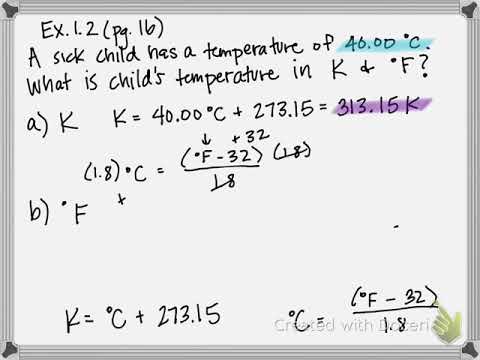 Ex. 1.2 (pg. 16)
A sick child has a temperature of 40.00 °C.
What is child's temperature in K & °F?
a) K K = 40.00 °C + 273.15 = 313.15 K
↓ + 32
(1.8) °C = (°F - 32) (1.8)
1.8
b) °F +
K = °C + 273.15 °C = (°F - 32)
1.8
Created with Doceri